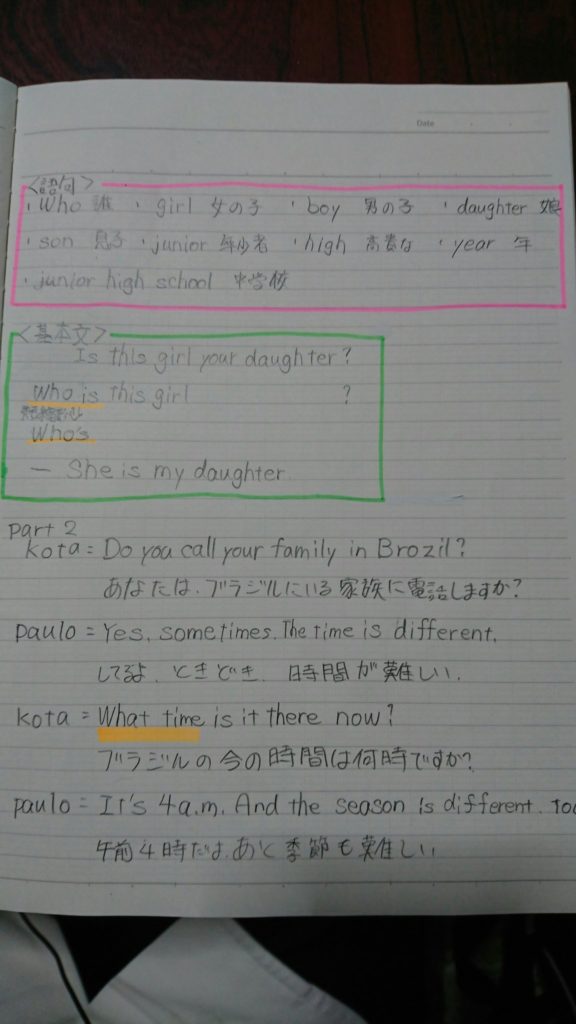 Date
<語句>
・Who 誰 ・girl 女の子 ・boy 男の子 ・daughter 娘
・son 息子 ・junior 年少者 ・high 高貴な ・year 年
・junior high school 中学校
<基本文>
Is this girl your daughter?
Who is this girl ?
Who's
— She is my daughter.
part 2
kota = Do you call your family in Brozil?
あなたは、ブラジルにいる家族に電話しますか?
paulo = Yes, sometimes. The time is different.
してるよ、ときどき、時間が難しい。
kota = What time is it there now?
ブラジルの今の時間は何時ですか?
paulo = It's 4 a.m. And the season is different. Too
午前4時だよ。あと季節も難しい